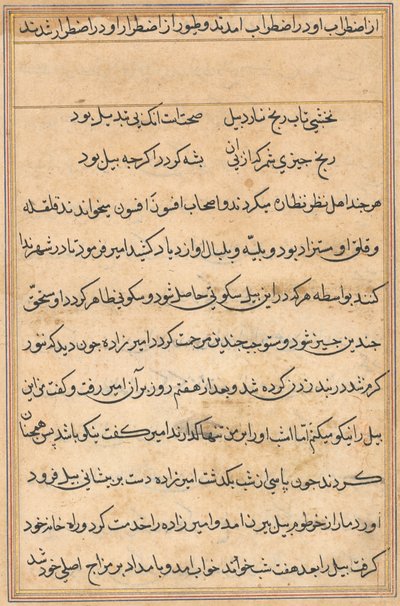 از اضطراب او در اضطراب آمدند و طیور از اضطرار او در اضطرار شدند
نخشبی تاب رنج نیارد پیل صحت است آنک بی تبدیل بود
رنج چیزی شمر که از پی آن پشه گردد اگرچه پیل بود
هرچند اهل نظر نظاره میکردند و اصحاب افسون افسون میخواندند قلقله
و قلق او مستزاد بود و بلیّه و بلبال او ازدیاد کنید امیر فرمود تا در شهر ندا
کنند بواسطه هر که درین پیل سکونی حاصل شود و سکونی ظاهر گردد او مستحق
چندین چیز شود و مستوجب چندین مرحمت گردد امیرزاده چون دید که تنور
گرم شد در بند زدن کرده شد و بعد از هفتم روز بر آن امیر رفت و گفت من این
پیل را نیکو میکنم اما امشب او را بر من تنها گذارند امیر گفت نیکو باشد پس همچنان
کردند چون پاسی از شب بگذشت امیرزاده دست بر پیشانی پیل فرود
آورد مار از خرطوم پیل بیرون آمد و امیرزاده را خدمت کرد و راه خانه خود
گرفت پیل را بعد هفت شب خواب آمد و بامداد بر مزاج اصلی خود شد